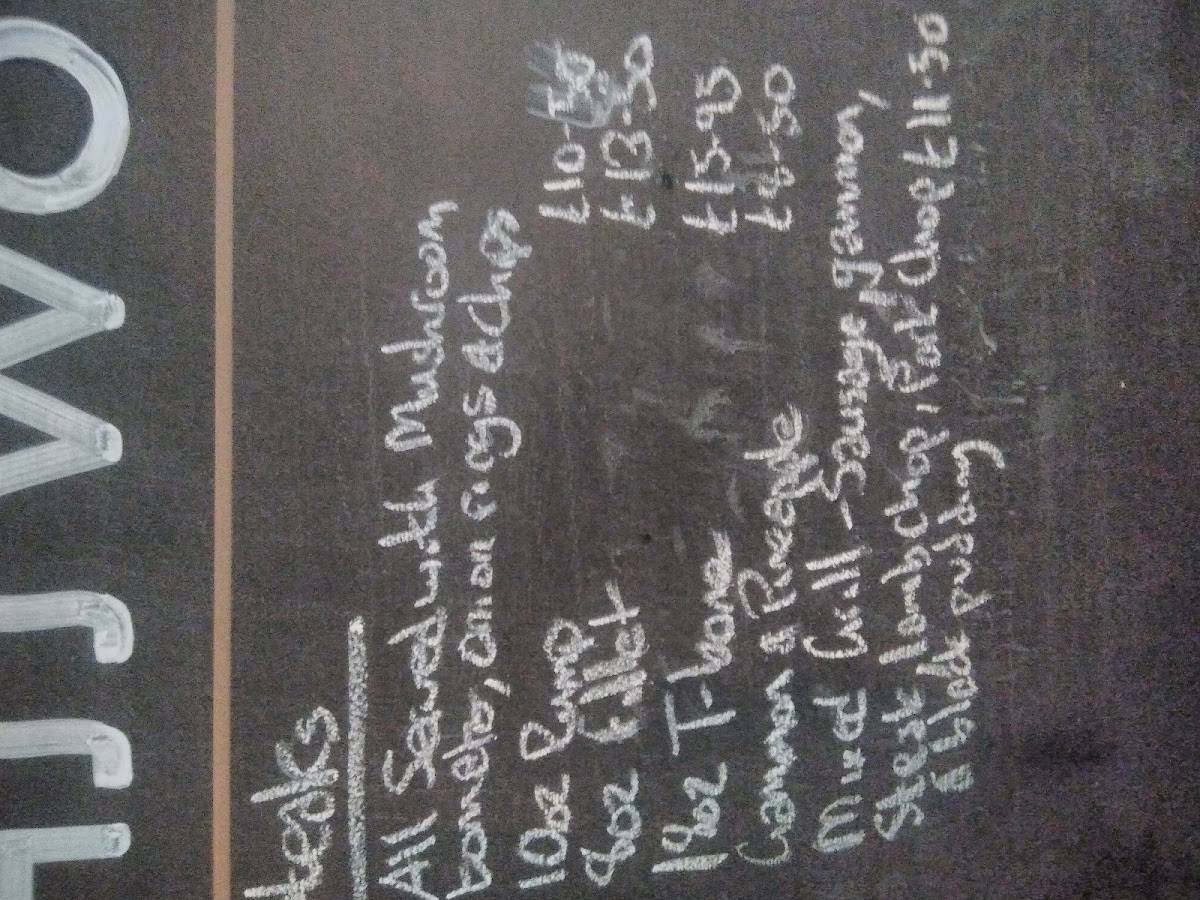 teaks
All Served with Mushroom
tomato, onion rings & chips
10oz Rump £10-50
8oz fillet £13-50
14oz T-bone £15-95
Gammon & Pineapple
Mixed Grill - Sausage, gammon,
Steak, lamb chop, Pork Chop £11-50
& black pudding